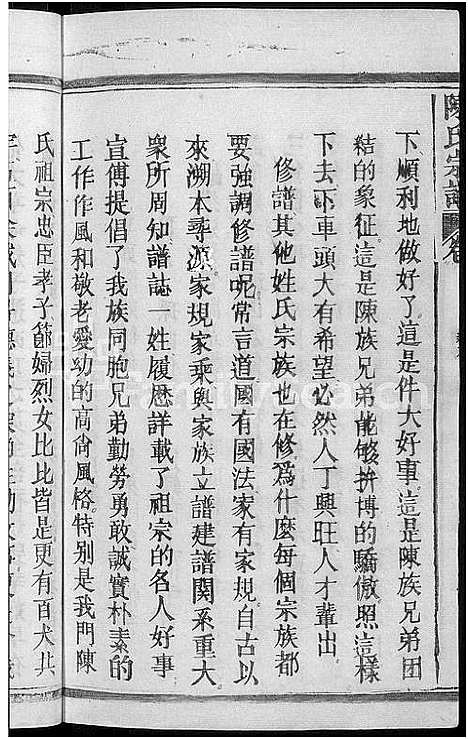 陳氏宗譜
下順利地做好了這是件大好事這是陳族兄弟团
結的象征這是陳族兄弟能够拚博的驕傲照這樣
下去下車頭大有希望必然人丁興旺人才輩出
修譜其他姓氏宗族也在修爲什麼每個宗族都
要強調修譜呢常言道國有國法家有家規自古以
來溯本尋源家規家乘與家族立譜建譜関系重大
衆所周知譜誌一姓履歷詳載了祖宗的名人好事
宣傳提倡了我族同胞兄弟勤勞勇敢誠實朴素的
工作作風和敬老愛幼的高尙風格特别是我門陳
氏祖宗忠臣孝子節婦烈女比比皆是更有百犬共